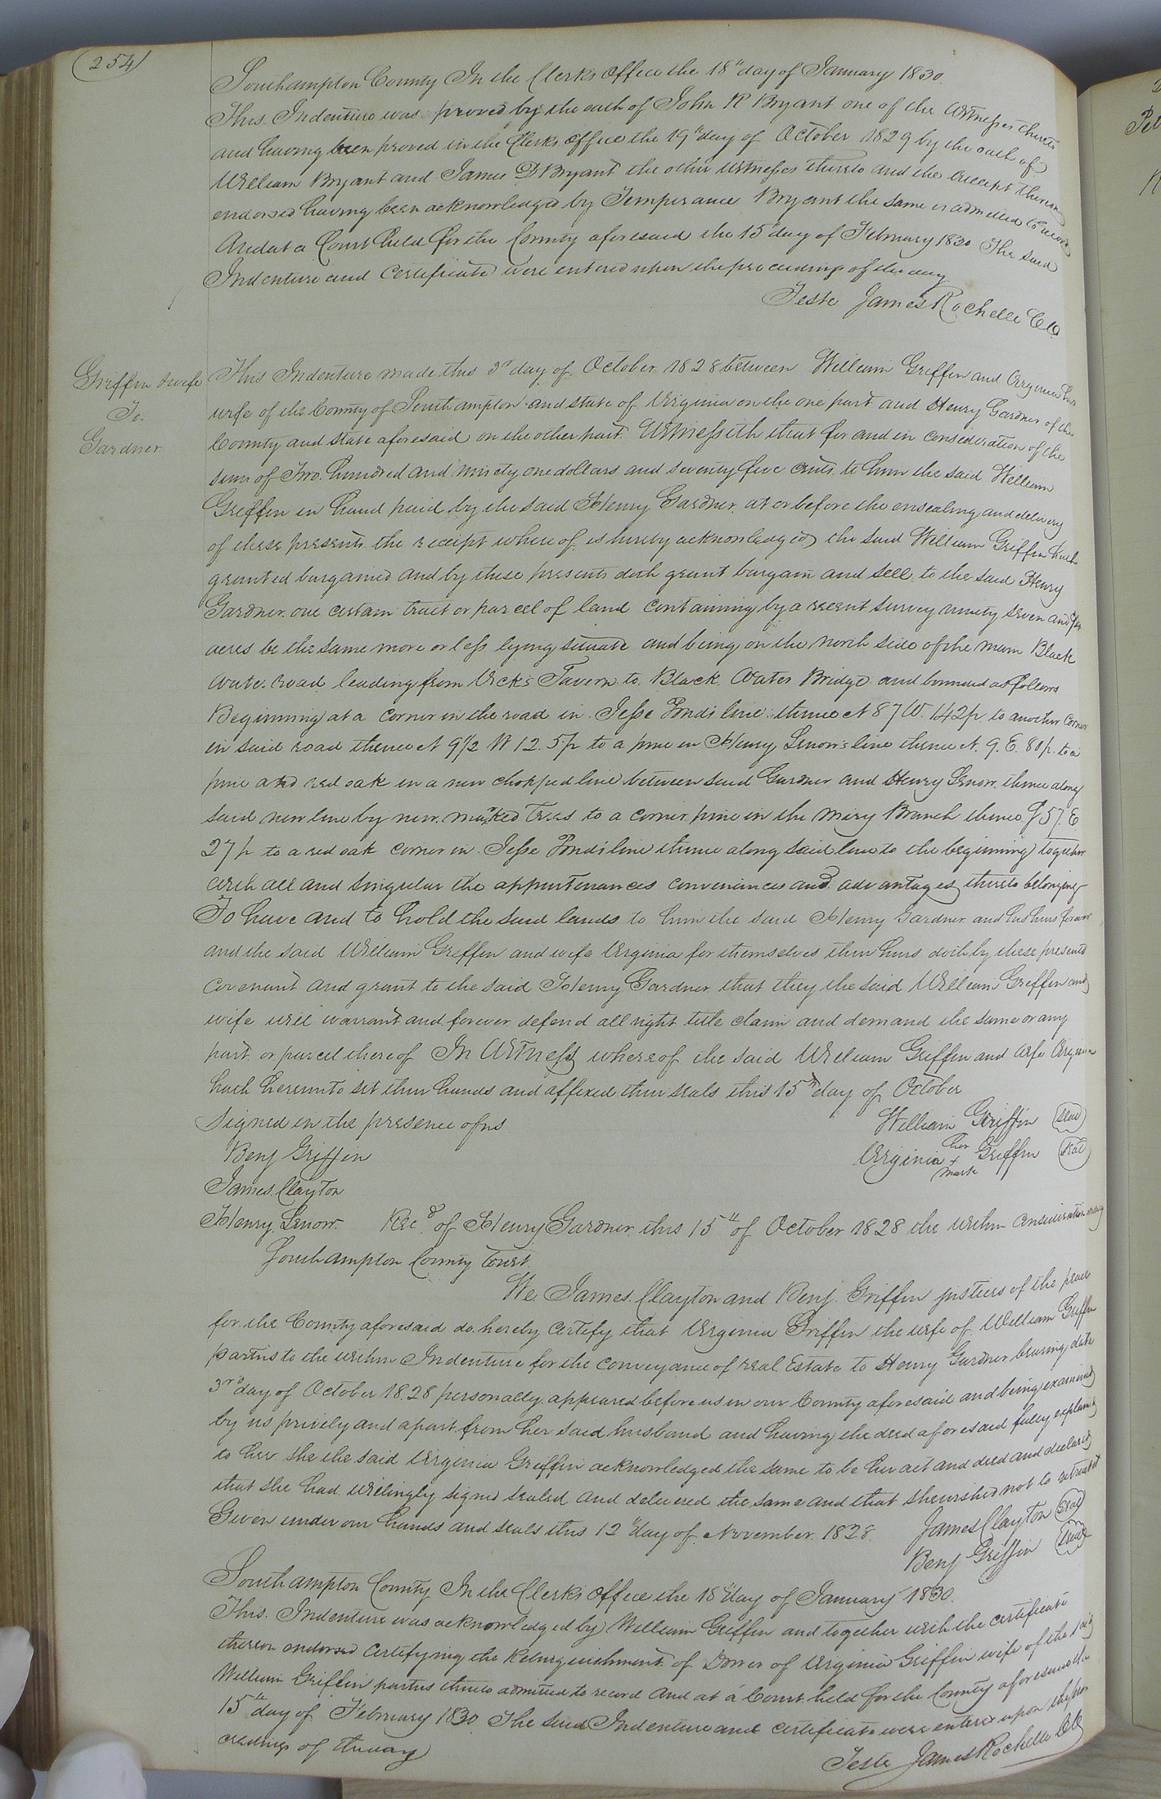 (254)
Southampton County In the Clerks office the 18th day of January 1830.
This Indenture was proved by the oath of John R Bryant one of the Witnesses thereto
and having been proved in the Clerks office the 19th day of October 1829 by the oath of
William Bryant and James D Bryant the other Witnesses thereto and the receipt thereon
endorsed having been acknowledged by Temperance Bryant the same is admitted to record
And at a Court held for the County aforesaid the 15th day of February 1830 The said
Indenture and Certificate were entered upon the proceedings of the day
Teste James Rochelle
Griffin & wife
To.
Gardner.
This Indenture made this 3rd day of October 1828 between William Griffin and Virginia his
wife of the County of Southampton and state of Virginia on the one part and Henry Gardner of the
County and State aforesaid on the other part. Witnesseth that for and in consideration of the
sum of Two hundred and ninety one dollars and seventy five cents to him the said William
Griffin in hand paid by the said Henry Gardner, at or before the ensealing and delivery
of these presents the receipt whereof is hereby acknowledged the said William Griffin hath
granted bargained and by these presents doth grant bargain and sell to the said Henry
Gardner one certain tract or parcel of land containing by a recent survey ninety seven and
acres be the same more or less lying situate and being on the north side of the main Black
Water road leading from Vick's Tavern to Black Water Bridge and bounded as follows
Beginning at a corner in the road in Jesse Ponds line thence N 87 W. 142p to another corner
in said road thence N 9½ W 12.5.p to a pine in Henry Lenow's line thence N. 9. E. 80p. to a
pine and red oak in a new chopped line between said Gardner and Henry Lenow thence along
said new line by new marked trees to a corner pine in the Miry Branch thence S 57. E
27p to a red oak corner in Jesse Ponds line thence along said line to the beginning together
with all and singular the appurtenances conveniences and advantages thereto belonging
To have and to hold the said lands to him the said Henry Gardner and his heirs forever
and the said William Griffin and wife Virginia for themselves their heirs doth by these presents
covenant and grant to the said Henry Gardner that they the said William Griffin and
wife will warrant and forever defend all right title claim and demand the same or any
part or parcel thereof In Witness whereof the said William Griffin and wife Virginia
hath hereunto set their hands and affixed their seals this 15th day of October
Signed in the presence of us
William Griffin (Seal)
Benj Griffin
Virginia her + mark Griffin (Seal)
James Clayton
Henry Lenow. Recd of Henry Gardner this 15th of October 1828 the within consideration
Southampton County Court
We James Clayton and Benj. Griffin justices of the peace
for the County aforesaid do hereby certify that Virginia Griffin the wife of William Griffin
parties to the within Indenture for the conveyance of real Estate to Henry Gardner bearing date
3rd day of October 1828 personally appeared before us in our County aforesaid and being examined
by us privily and apart from her said husband and having the deed aforesaid fully explained
to her she the said Virginia Griffin acknowledged the same to be her act and deed and declared
that she had willingly signed sealed and delivered the same and that she wished not to retract it
Given under our hands and seals this 12th day of November 1828.
James Clayton (Seal)
Benj Griffin (Seal)
Southampton County In the Clerks Office the 18th day of January 1830.
This Indenture was acknowledged by William Griffin and together with the certificate
thereon endorsed certifying the Relinquishment of Dower of Virginia Griffin wife of the said
William Griffin parties thereto admitted to record And at a Court held for the County aforesaid the
15th day of February 1830 The said Indenture and certificate were entered upon the pro
ceedings of the day
Teste James Rochelle Clk